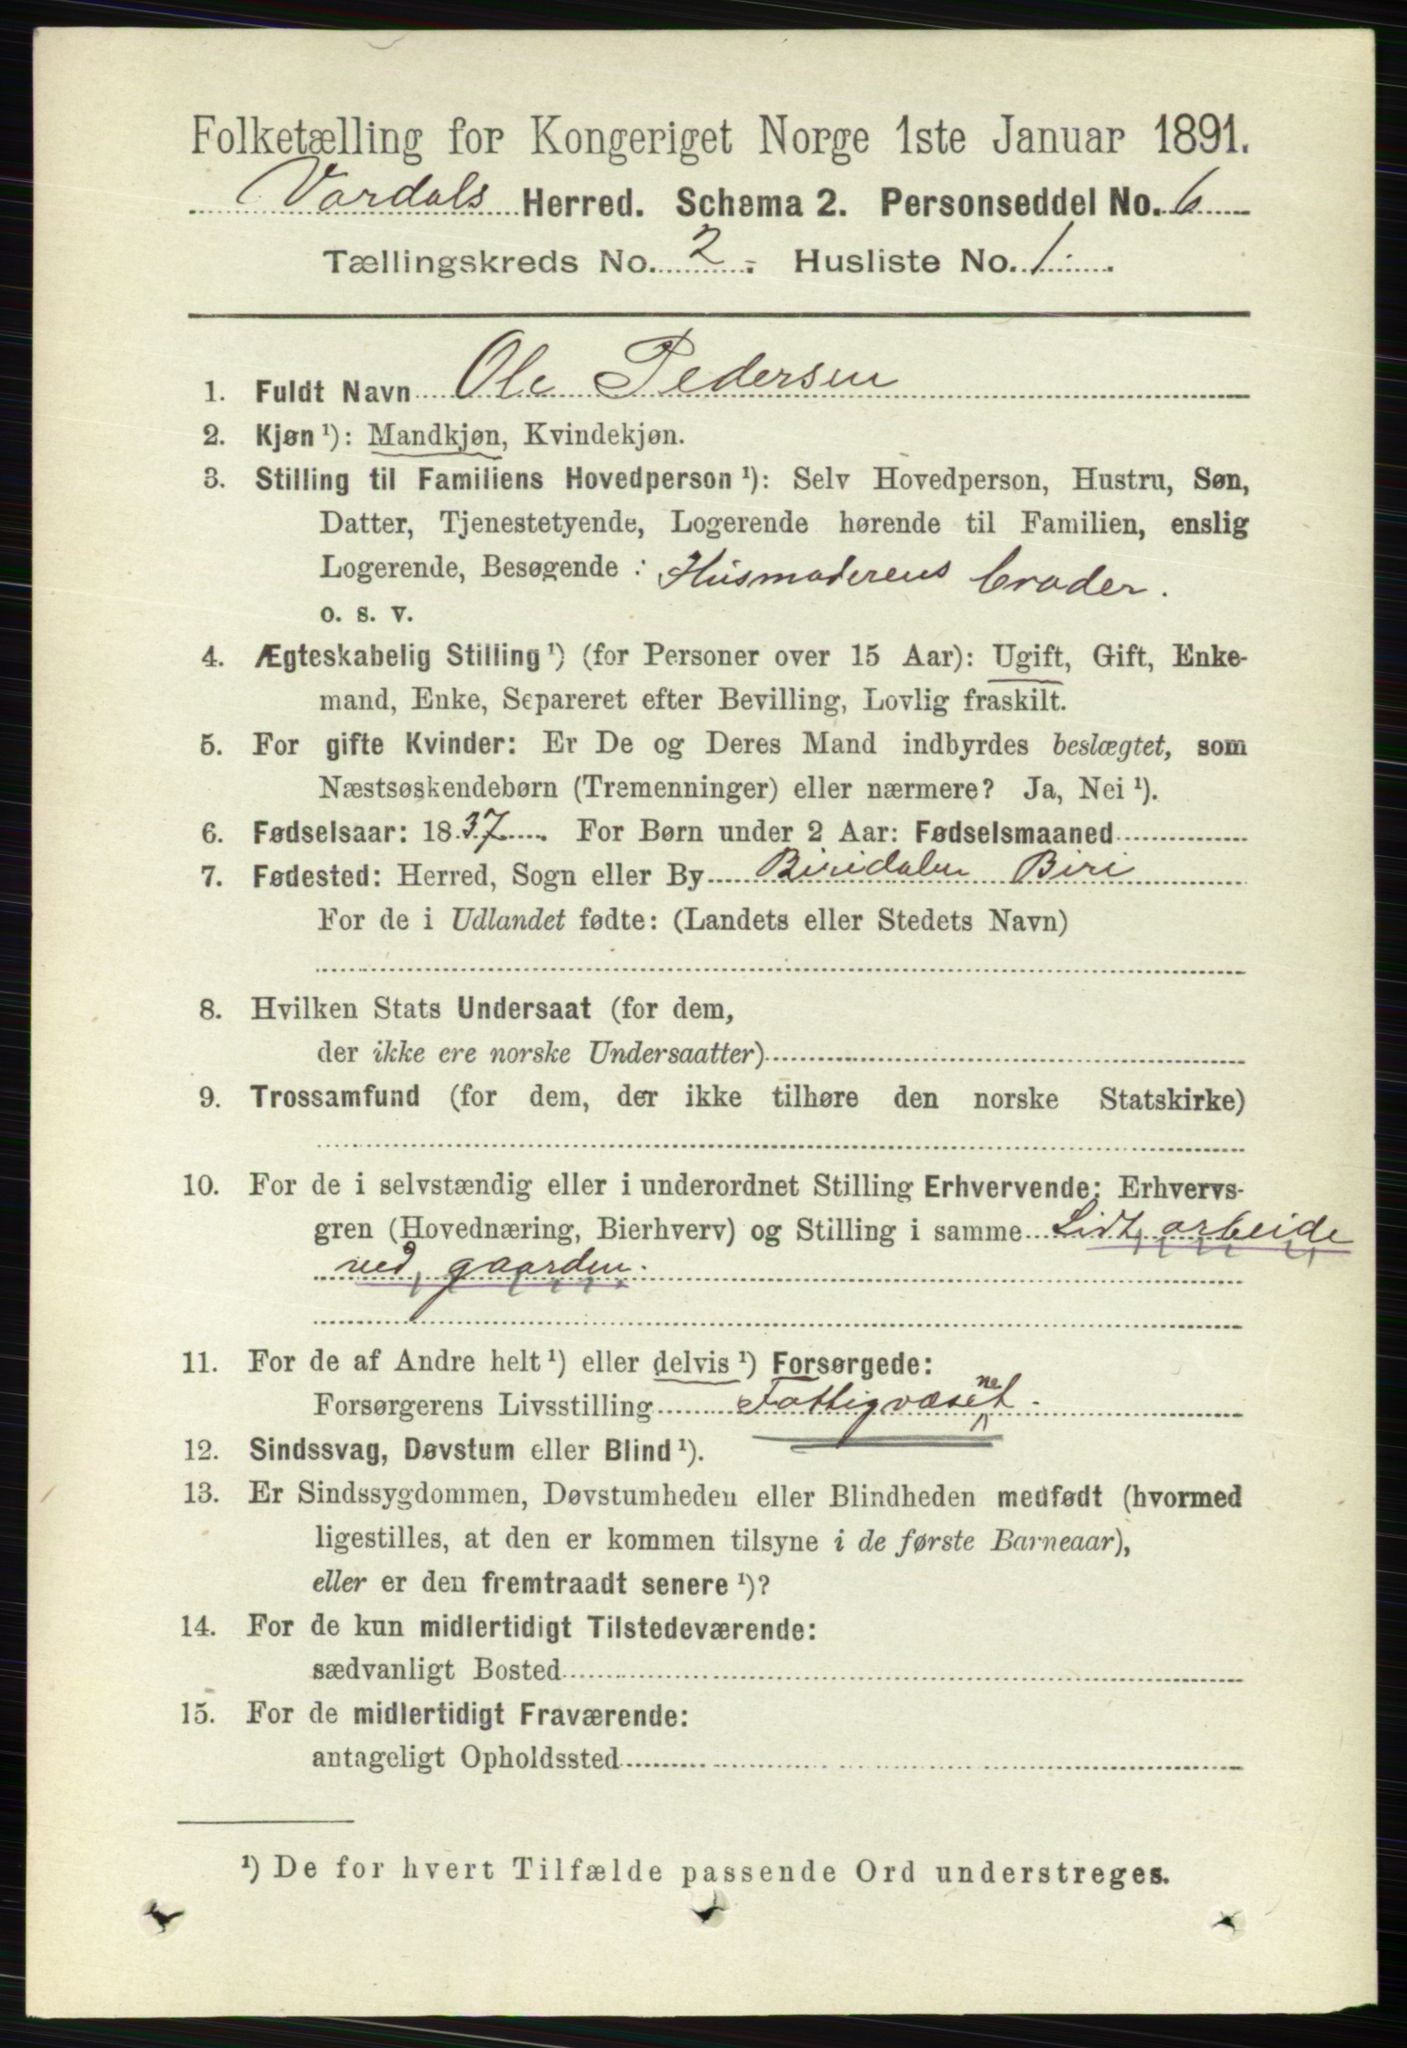 Folketælling for Kongeriget Norge 1ste Januar 1891.
Vardals Herred. Schema 2. Personseddel No. 6
Tællingskreds No. 2. Husliste No. 1.
1. Fuldt Navn Ole Pedersen
2. Kjøn ¹): Mandkjøn, Kvindekjøn.
3. Stilling til Familiens Hovedperson ¹): Selv Hovedperson, Hustru, Søn,
Datter, Tjenestetyende, Logerende hørende til Familien, enslig
Logerende, Besøgende : Husmoderens broder.
o. s. v.
4. Ægteskabelig Stilling ¹) (for Personer over 15 Aar): Ugift, Gift, Enke-
mand, Enke, Separeret efter Bevilling, Lovlig fraskilt.
5. For gifte Kvinder: Er De og Deres Mand indbyrdes beslægtet, som
Næstsøskendebørn (Tremenninger) eller nærmere? Ja, Nei ¹).
6. Fødselsaar: 1837. For Børn under 2 Aar: Fødselsmaaned
7. Fødested: Herred, Sogn eller By Biridalen Biri
For de i Udlandet fødte: (Landets eller Stedets Navn)
8. Hvilken Stats Undersaat (for dem,
der ikke ere norske Undersaatter)
9. Trossamfund (for dem, der ikke tilhøre den norske Statskirke)
10. For de i selvstændig eller i underordnet Stilling Erhvervende: Erhvervs-
gren (Hovednæring, Bierhverv) og Stilling i samme Lidt arbeide
ved gaarden.
11. For de af Andre helt ¹) eller delvis ¹) Forsørgede:
Forsørgerens Livsstilling Fattigvæsenet.
12. Sindssvag, Døvstum eller Blind ¹).
13. Er Sindssygdommen, Døvstumheden eller Blindheden medfødt (hvormed
ligestilles, at den er kommen tilsyne i de første Barneaar),
eller er den fremtraadt senere ¹)?
14. For de kun midlertidigt Tilstedeværende:
sædvanligt Bosted
15. For de midlertidigt Fraværende:
antageligt Opholdssted
¹) De for hvert Tilfælde passende Ord understreges.